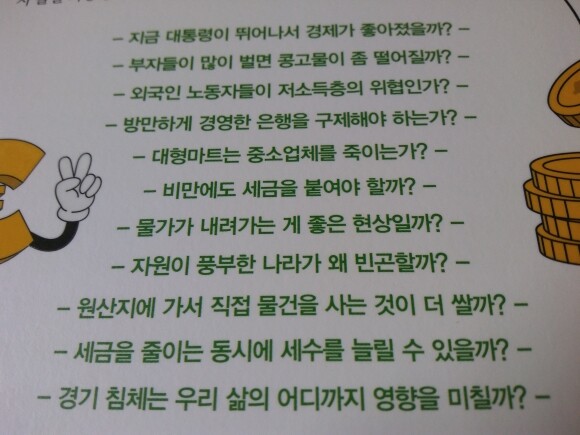 - 지금 대통령이 뛰어나서 경제가 좋아졌을까? -
- 부자들이 많이 벌면 콩고물이 좀 떨어질까? -
- 외국인 노동자들이 저소득층의 위협인가? -
- 방만하게 경영한 은행을 구제해야 하는가? -
- 대형마트는 중소업체를 죽이는가? -
- 비만에도 세금을 붙여야 할까? -
- 물가가 내려가는 게 좋은 현상일까? -
- 자원이 풍부한 나라가 왜 빈곤할까? -
- 원산지에 가서 직접 물건을 사는 것이 더 쌀까? -
- 세금을 줄이는 동시에 세수를 늘릴 수 있을까? -
- 경기 침체는 우리 삶의 어디까지 영향을 미칠까? -